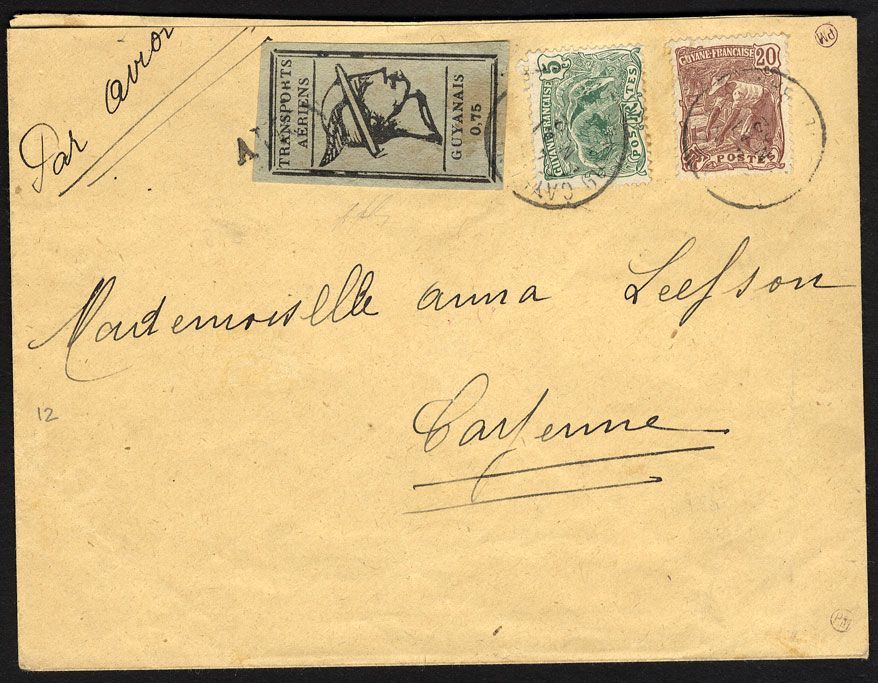 Par avion
TRANSPORTS
AÉRIENS
GUYANAIS
0,75
5
GUYANE-FRANÇAISE
POSTES
GUYANE-FRANÇAISE
20
POSTES
PM
Mademoiselle anna Leefson
Cayenne
12
PM